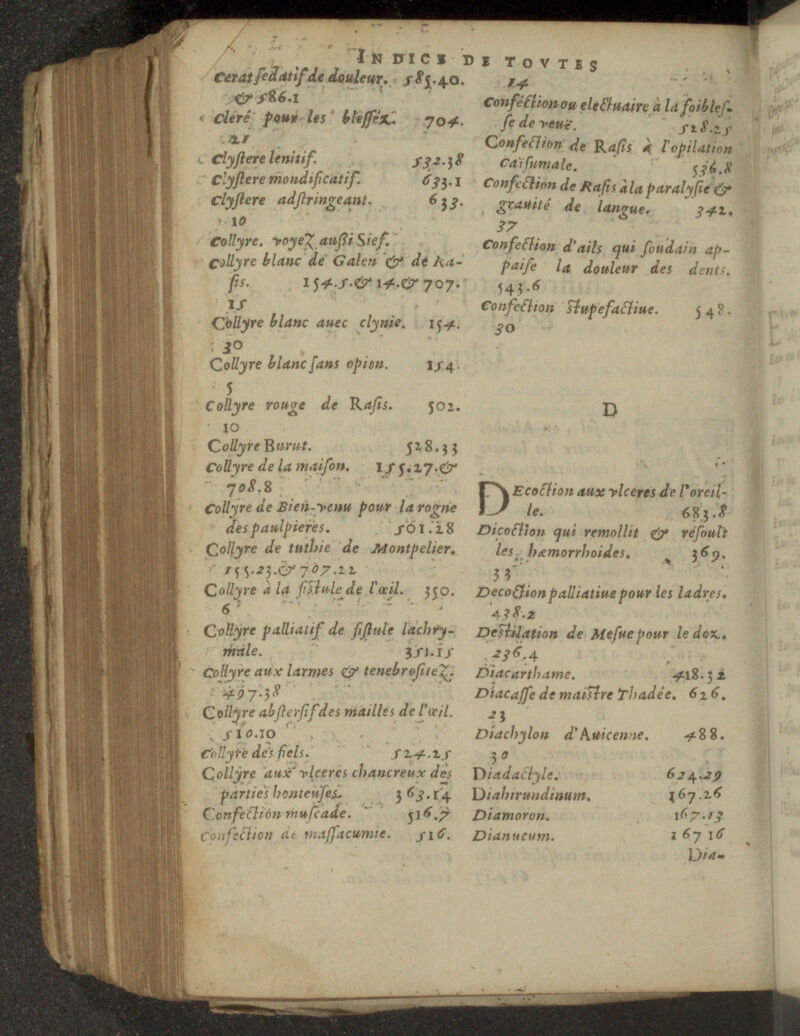 INDICE DE TOVTES
Cerat sedatif de douleur. 585.40.
& 586.1
cleré pour les blessez. 704.
21
Clystere lenitif. 532.38
Clystere mondificatif. 633.1
clystere adstringeant. 633.
10
Collyre. voyez aussi Sief.
Collyre blanc de Galen & de Ra-
sis. 154.5.& 14.& 707.
15
Collyre blanc auec clynie. 154.
30
Collyre blanc sans opion. 154.
5
Collyre rouge de Rasis. 502.
10
Collyre Burut. 528.33
Collyre de la maison. 155.27.&
708.8
Collyre de Bien-venu pour la rogne
des paulpieres. 501.28
Collyre de tuthie de Montpelier.
155.23.& 707.22
Collyre à la fistule de l'œil. 350.
6
Collyre palliatif de fistule lachry-
male. 351.15
Collyre aux larmes & tenebrositez.
497.38
Collyre abstersif des mailles de l'œil.
510.10
Collyre des fiels. 524.25
Collyre aux vlceres chancreux des
parties honteuses. 363.14
Confection muscade. 516.7
Confection de massacumie. 516.
14
Confection ou electuaire à la foibles-
se de veuë. 518.25
Confection de Rasis à l'opilation
caisumale. 536.8
Confection de Rasis à la paralysie &
grauité de langue. 342.
37
Confection d'ails qui soudain ap-
paise la douleur des dents.
543.6
Confection stupefactiue. 548.
30
D
DEcoction aux vlceres de l'oreil-
le. 683.8
Dicoction qui remollit & resoult
les hæmorrhoides. 369.
33
Decoction palliatiue pour les ladres.
438.2
Destilation de Mesue pour le dox.
236.4
Diacarthame. 418.32
Diacasse de maistre Thadée. 626.
23
Diachylon d'Auicenne. 488.
30
Diadactyle. 624.29
Diahirundinum. 167.26
Diamoron. 167.13
Dianucum. 167 16
Dia-